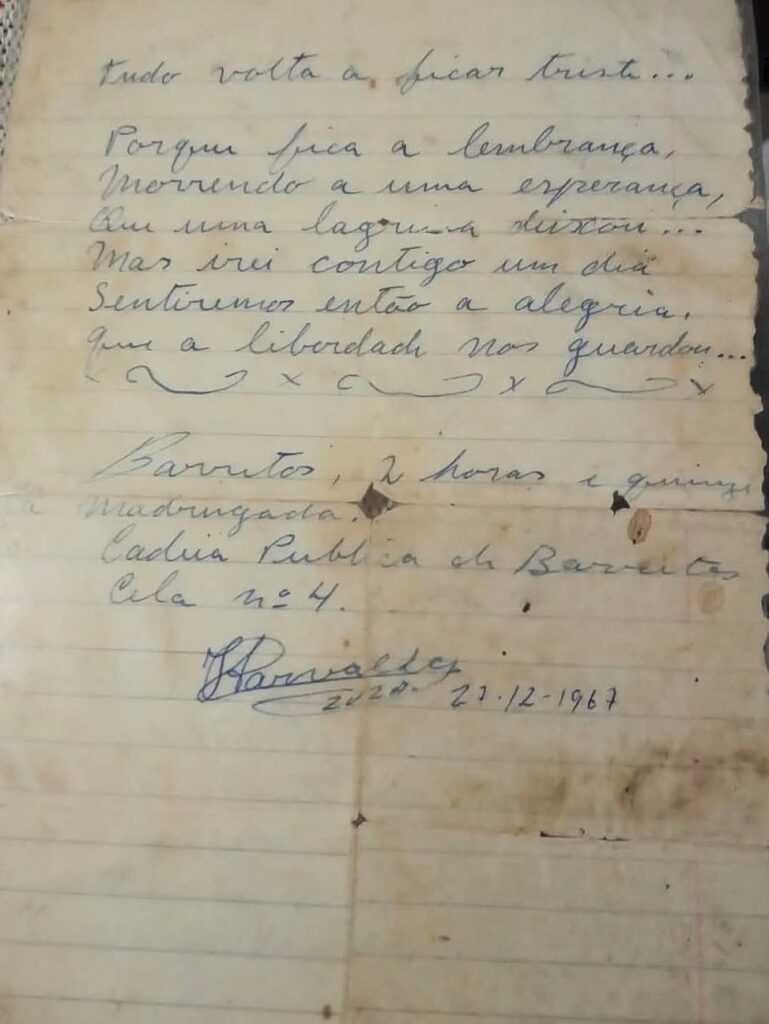 tudo volta a ficar triste...
Porque fica a lembrança,
Morrendo a uma esperança,
Que uma lagrima deixou...
Mas irei contigo um dia
Sentiremos então a alegria,
que a liberdade nos guardou...
Barretos, 2 horas e quinze
da Madrugada.
Cadeia Publica de Barretos
Cela nº 4.
27-12-1967